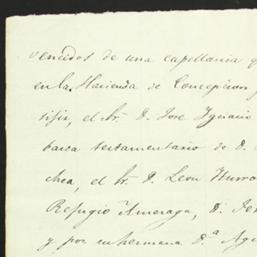 vencidos de una capellanía q
en la Hacienda de Concepcion
tifix, el Sr. D. José Ignacio
bacea testamentario de D.
chea, el Sr. D. Leon
Refugio Amezaga, D.
y por su hermana D.ª Agu